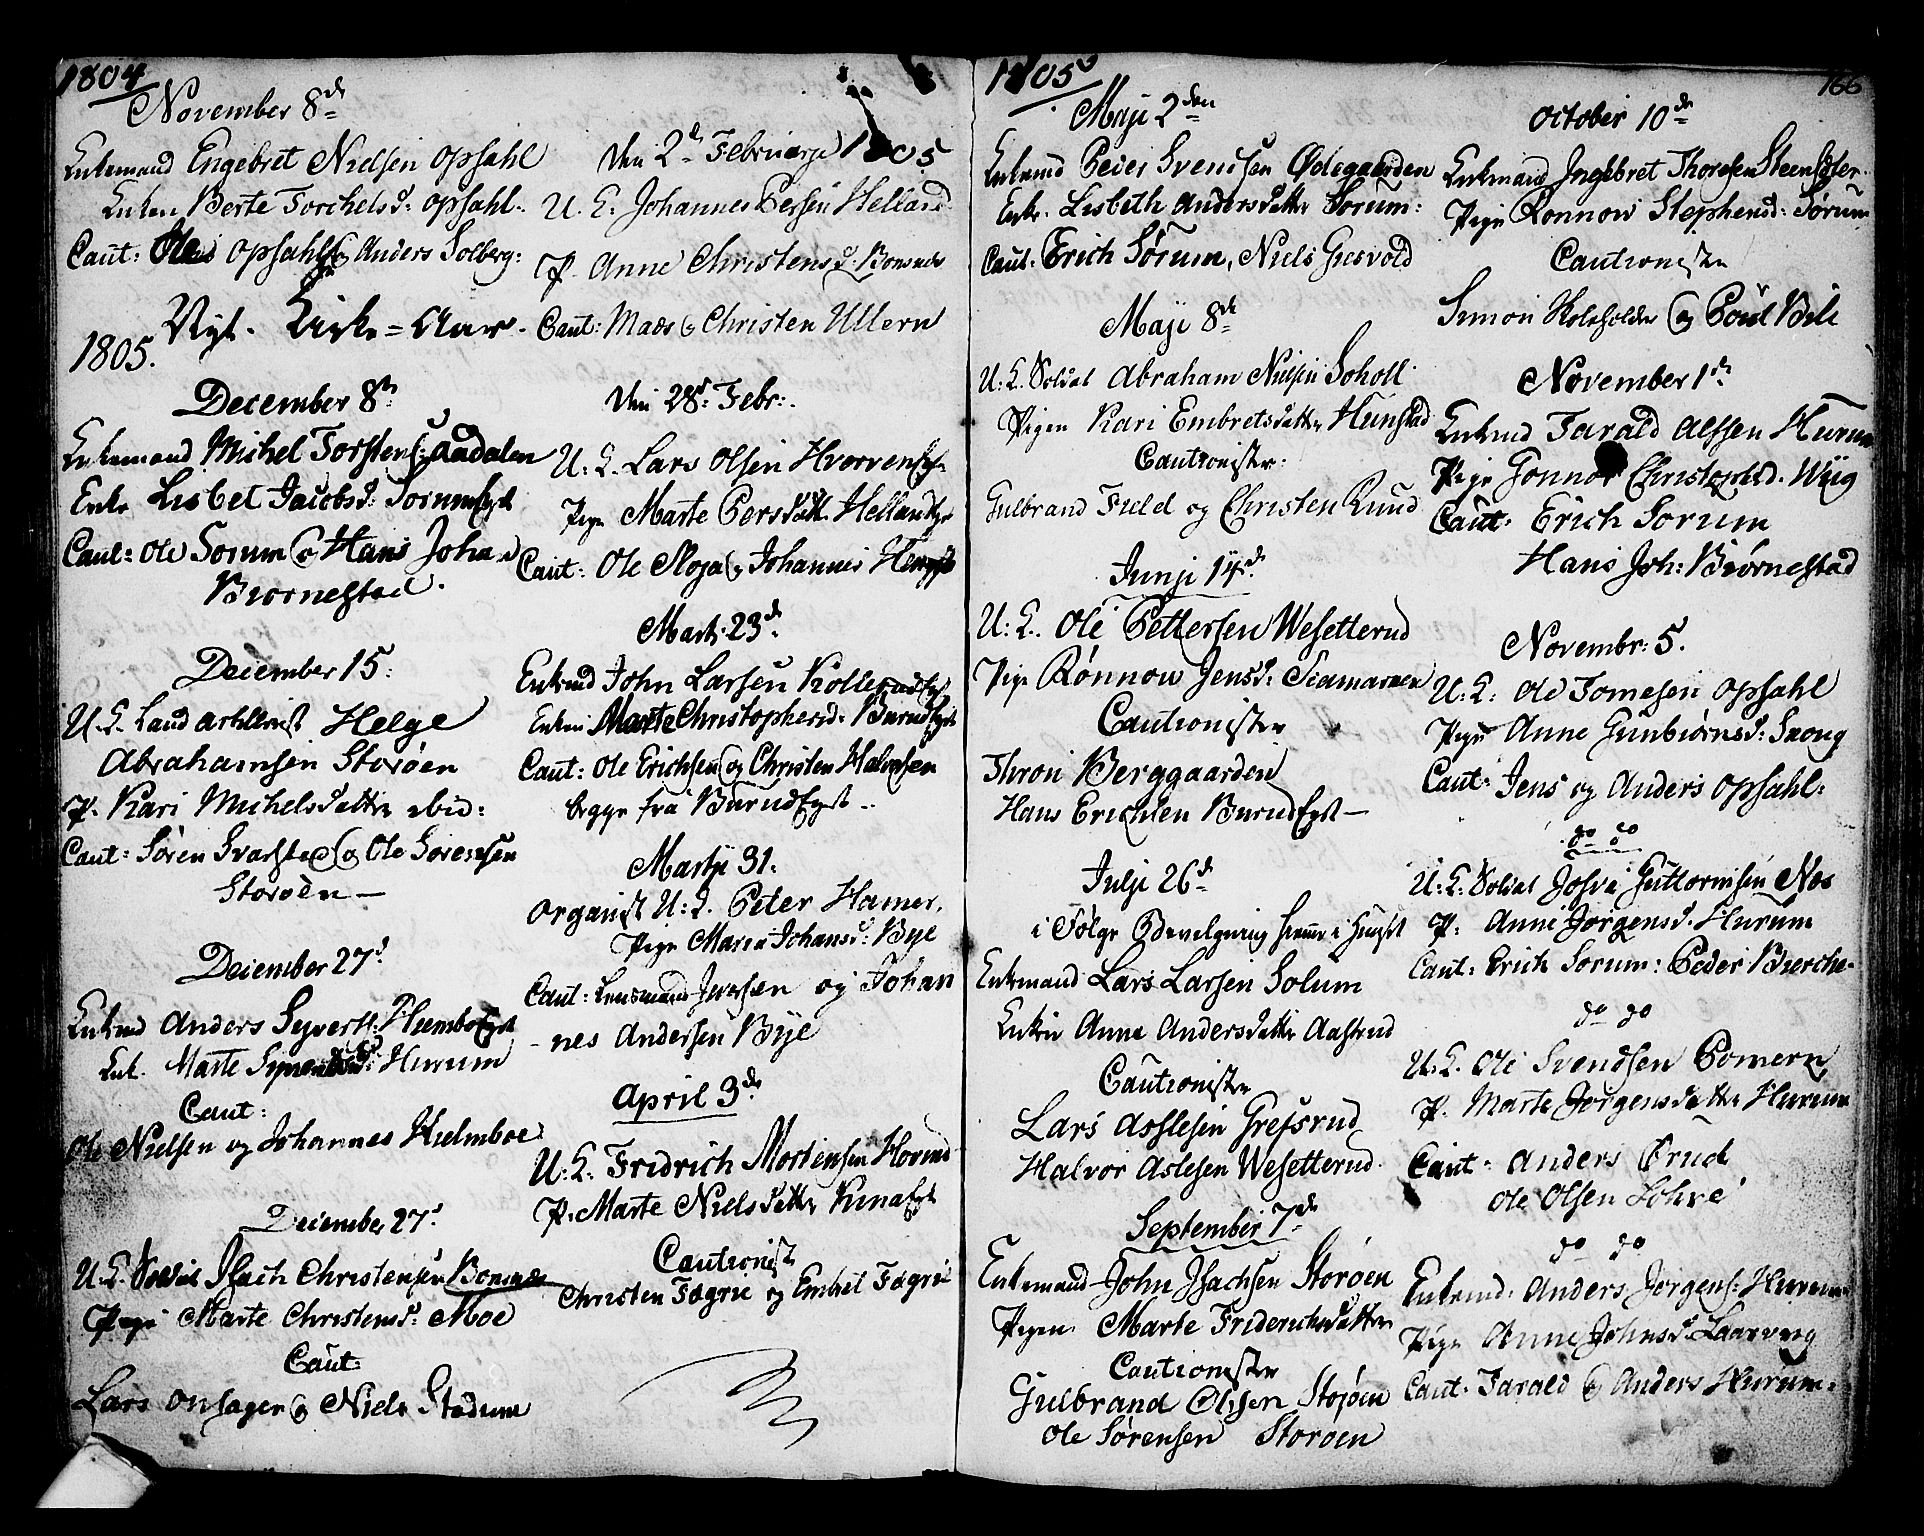 1804
November 8de
Enkemand Engebret Nielsen Opsahl
Enken Berte Torchelsd: Opsahl.
Caut: Ole Opsahl og Anders Solberg:
Nyt. Kirke = Aar.
1805.
December 8de
Enkemand Michel Torstens: Aadalen
Enke Lisbet Jacobsd: Sorumeyet
Caut: Ole Sorum og Hans Johans
Biornestad.
Deiember 15.
U. K. Land artilerist Helge
Abrahamsen Storøen
P. Kari Michelsdatter ibid:
Caut: Søren Svarstad og Ole Sorensen
Storøen —
Deiember 27d
Enkmd Anders Syverts: HiemboEyet
Enk. Marte Simensd: Hurum
Caut:
Ole Nielsen og Johannes Hielmboe
Deiember 27d
U. K. Soldat Isach Christensen Bonsnæs
Pigen Marte Christensd: Moe
Caut:
Lars Onsager og Niels Stadum
Den 2d Februarii 1805
U. K. Johannes Persen Helland
P. Anne Christensd: Bonsnæs
Caut: Mads og Christen Ullern
Den 28d Febr:
U. K. Lars Olsen Hvervenseye
Pige Marte Persdatt. HellandEye
Caut: Ole Moja og Johannes
Marti 23d
Enkmd John Larsen KollerudEyet
Enken Marte Christophersd: BurudEyet
Caut: Ole Erichsen og Christen Halvorsen
begge fra BurudEyet
Martji 31.
Organist U: K. Peter Hamer,
Pige Maria Johansd: Bye
Caut: Lensmand Iversen og Johan
nes Andersen Bye
April 3de
U: K. Fridrich Mortensen Hovind
P. Marte Nielsdatter Eyet
Cautionist
Christen Fægrie og Embret Fægrie
1805
166
Maji 2den
Enkemd Peder Svendsen Ødegaarden
Enke. Lisbeth Andersdatter Sorum:
Caut: Erich Sørum, Niels Gjesvold
Maji 8de
U: K. Soldat Abraham Nielsen Soholt
Pigen Kari Embretsdatter Hunstad
Cautionister:
Gulbrand Field og Christen Ruud
Junji 14d
U: K. Ole Pettersen Wesetterud
Pige Rønnow Jensd:
Cautionister
Thron Berggaarden
Hans Erichsen BurudEyet —
Julji 26de
i Følge Bevilgning hiemme i Huset
Enkemand Lars Larsen Solum
Enken Anne Andersdatter Aasterud
Cautionister
Lars Asslesen Grefsrud
Halvor Aslesen Wesetterud
September 7de
Enkemand John Isachsen Storøen
Pigen Marte Fridericksdatter
Cautionister
Gulbrand Olsen Storøen
Ole Sørensen Storoen
October 10de
Enkmand Ingebret Thoresen Steensæter.
Pige Ronnow Stephensd: Sørum
Cautionister
Simon Skoleholder og Poul Bile
November 1de
Enkmd Tarald Alfsen Hurum
Pige Gonnor Christophd. Wiig
Caut: Erich Sorum
Hans Joh: Biørnestad
Novembr: 5.
U: K: Ole Tomesen Opsahl
Pige Anne Gunbiørnsd:
Caut: Jens og Anders Opsahl:
do do
U: K. Soldat Josva Guttormsen Næs
P. Anne Jørgensd. Hurum
Caut: Erich Sorum: Peder Bierche
do do
U: K. Ole Svendsen Pomern
P. Marte Jørgensdatter Hurum
Caut: Anders Ørud
Ole Olsen Lohre
do do
Enkemd. Anders Jørgens: Hurum
Pige Anne Johnsd: Laarveg
Caut: Tarald og Anders Hurum: